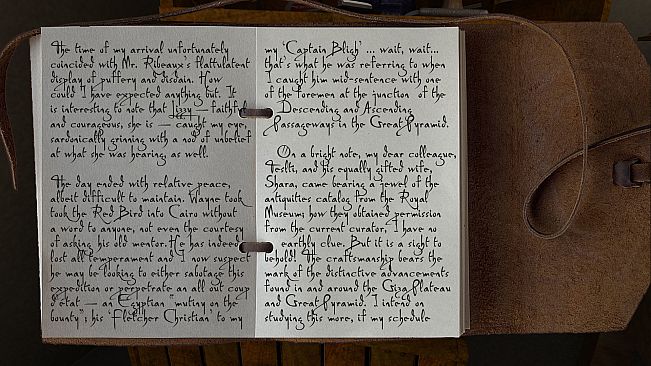 The time of my arrival unfortunately
coincided with Mr. Ribeaux's flatfulatent
display of puffery and disdain. How
could I have expected anything but. It
is interesting to note that Jizzy — faithful
and courageous, she is — caught my eye,
sardonically grinning with a nod of unbelief
at what she was hearing, as well.
The day ended with relative peace,
albeit difficult to maintain. Wayne took
took the Red Bird into Cairo without
a word to anyone, not even the courtesy
of asking his old mentor. He has indeed
lost all temperament and I now suspect
he may be looking to either sabotage this
expedition or perpetrate an all out coup
d'etat — an Egyptian "mutiny on the
bounty"; his 'Fletcher Christian' to my
my 'Captain Bligh' ... wait, wait...
that's what he was referring to when
I caught him mid-sentence with one
of the foremen at the junction of the
Descending and Ascending
Passageways in the Great Pyramid.
On a bright note, my dear colleague,
Teslti, and his equally gifted wife,
Shara, came bearing a jewel of the
antiquities catalog from the Royal
Museum; how they obtained permission
from the current curator, I have no
earthly clue. But it is a sight to
behold! The craftsmanship bears the
mark of the distinctive advancements
found in and around the Giza Plateau
and Great Pyramid. I intend on
studying this more, if my schedule